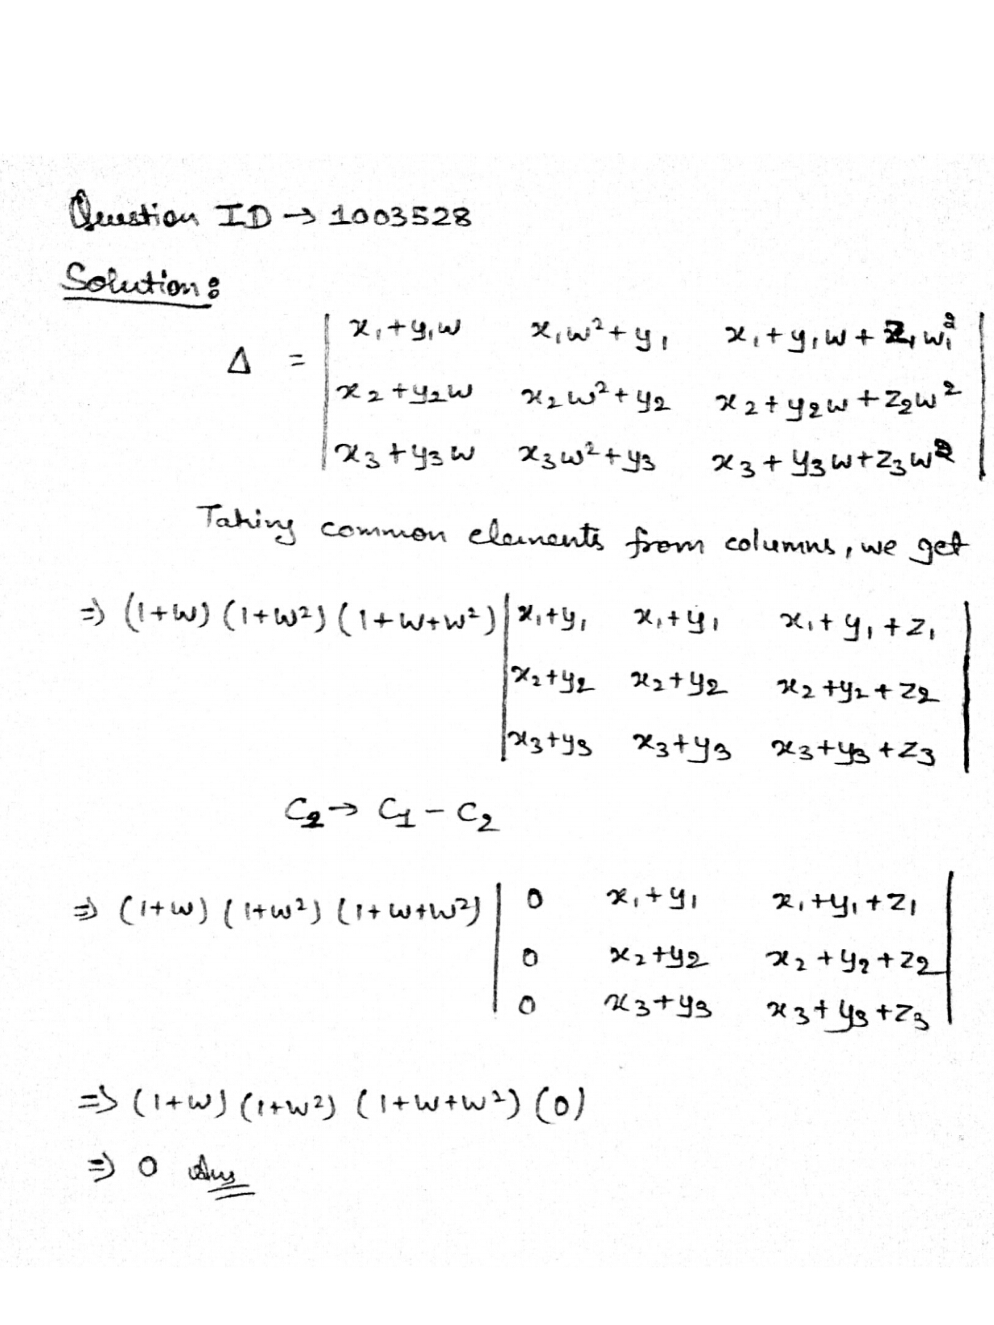 Question ID → 1003528
Solution:
Δ = | x₁+y₁w x₁w²+y₁ x₁+y₁w+z₁w₁² |
| x₂+y₂w x₂w²+y₂ x₂+y₂w+z₂w² |
| x₃+y₃w x₃w²+y₃ x₃+y₃w+z₃w² |
Taking common elements from columns, we get
⇒ (1+w) (1+w²) (1+w+w²) | x₁+y₁ x₁+y₁ x₁+y₁+z₁ |
| x₂+y₂ x₂+y₂ x₂+y₂+z₂ |
| x₃+y₃ x₃+y₃ x₃+y₃+z₃ |
C₂→ C₁ - C₂
⇒ (1+w) (1+w²) (1+w+w²) | 0 x₁+y₁ x₁+y₁+z₁ |
| 0 x₂+y₂ x₂+y₂+z₂ |
| 0 x₃+y₃ x₃+y₃+z₃ |
⇒ (1+w) (1+w²) (1+w+w²) (0)
⇒ 0 Ans